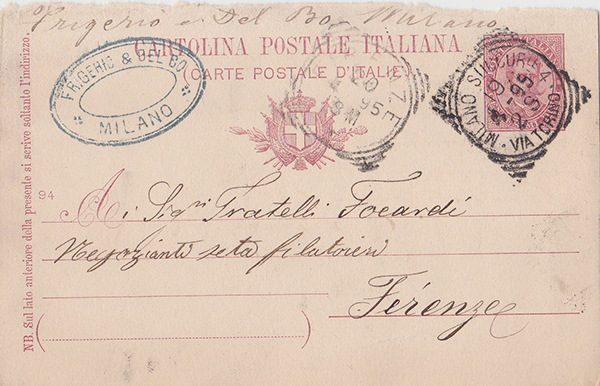 Frigerio e Del Bo, Milano
CARTOLINA POSTALE ITALIANA
(CARTE POSTALE D'ITALIE)
FRIGERIO & DEL BO
MILANO
95
MILANO
VIA TORINO
94
Ai Sigri Fratelli Focardi
Negozianti seta filatoieri
Firenze
NB. Sul lato anteriore della presente si scrive soltanto l'indirizzo.